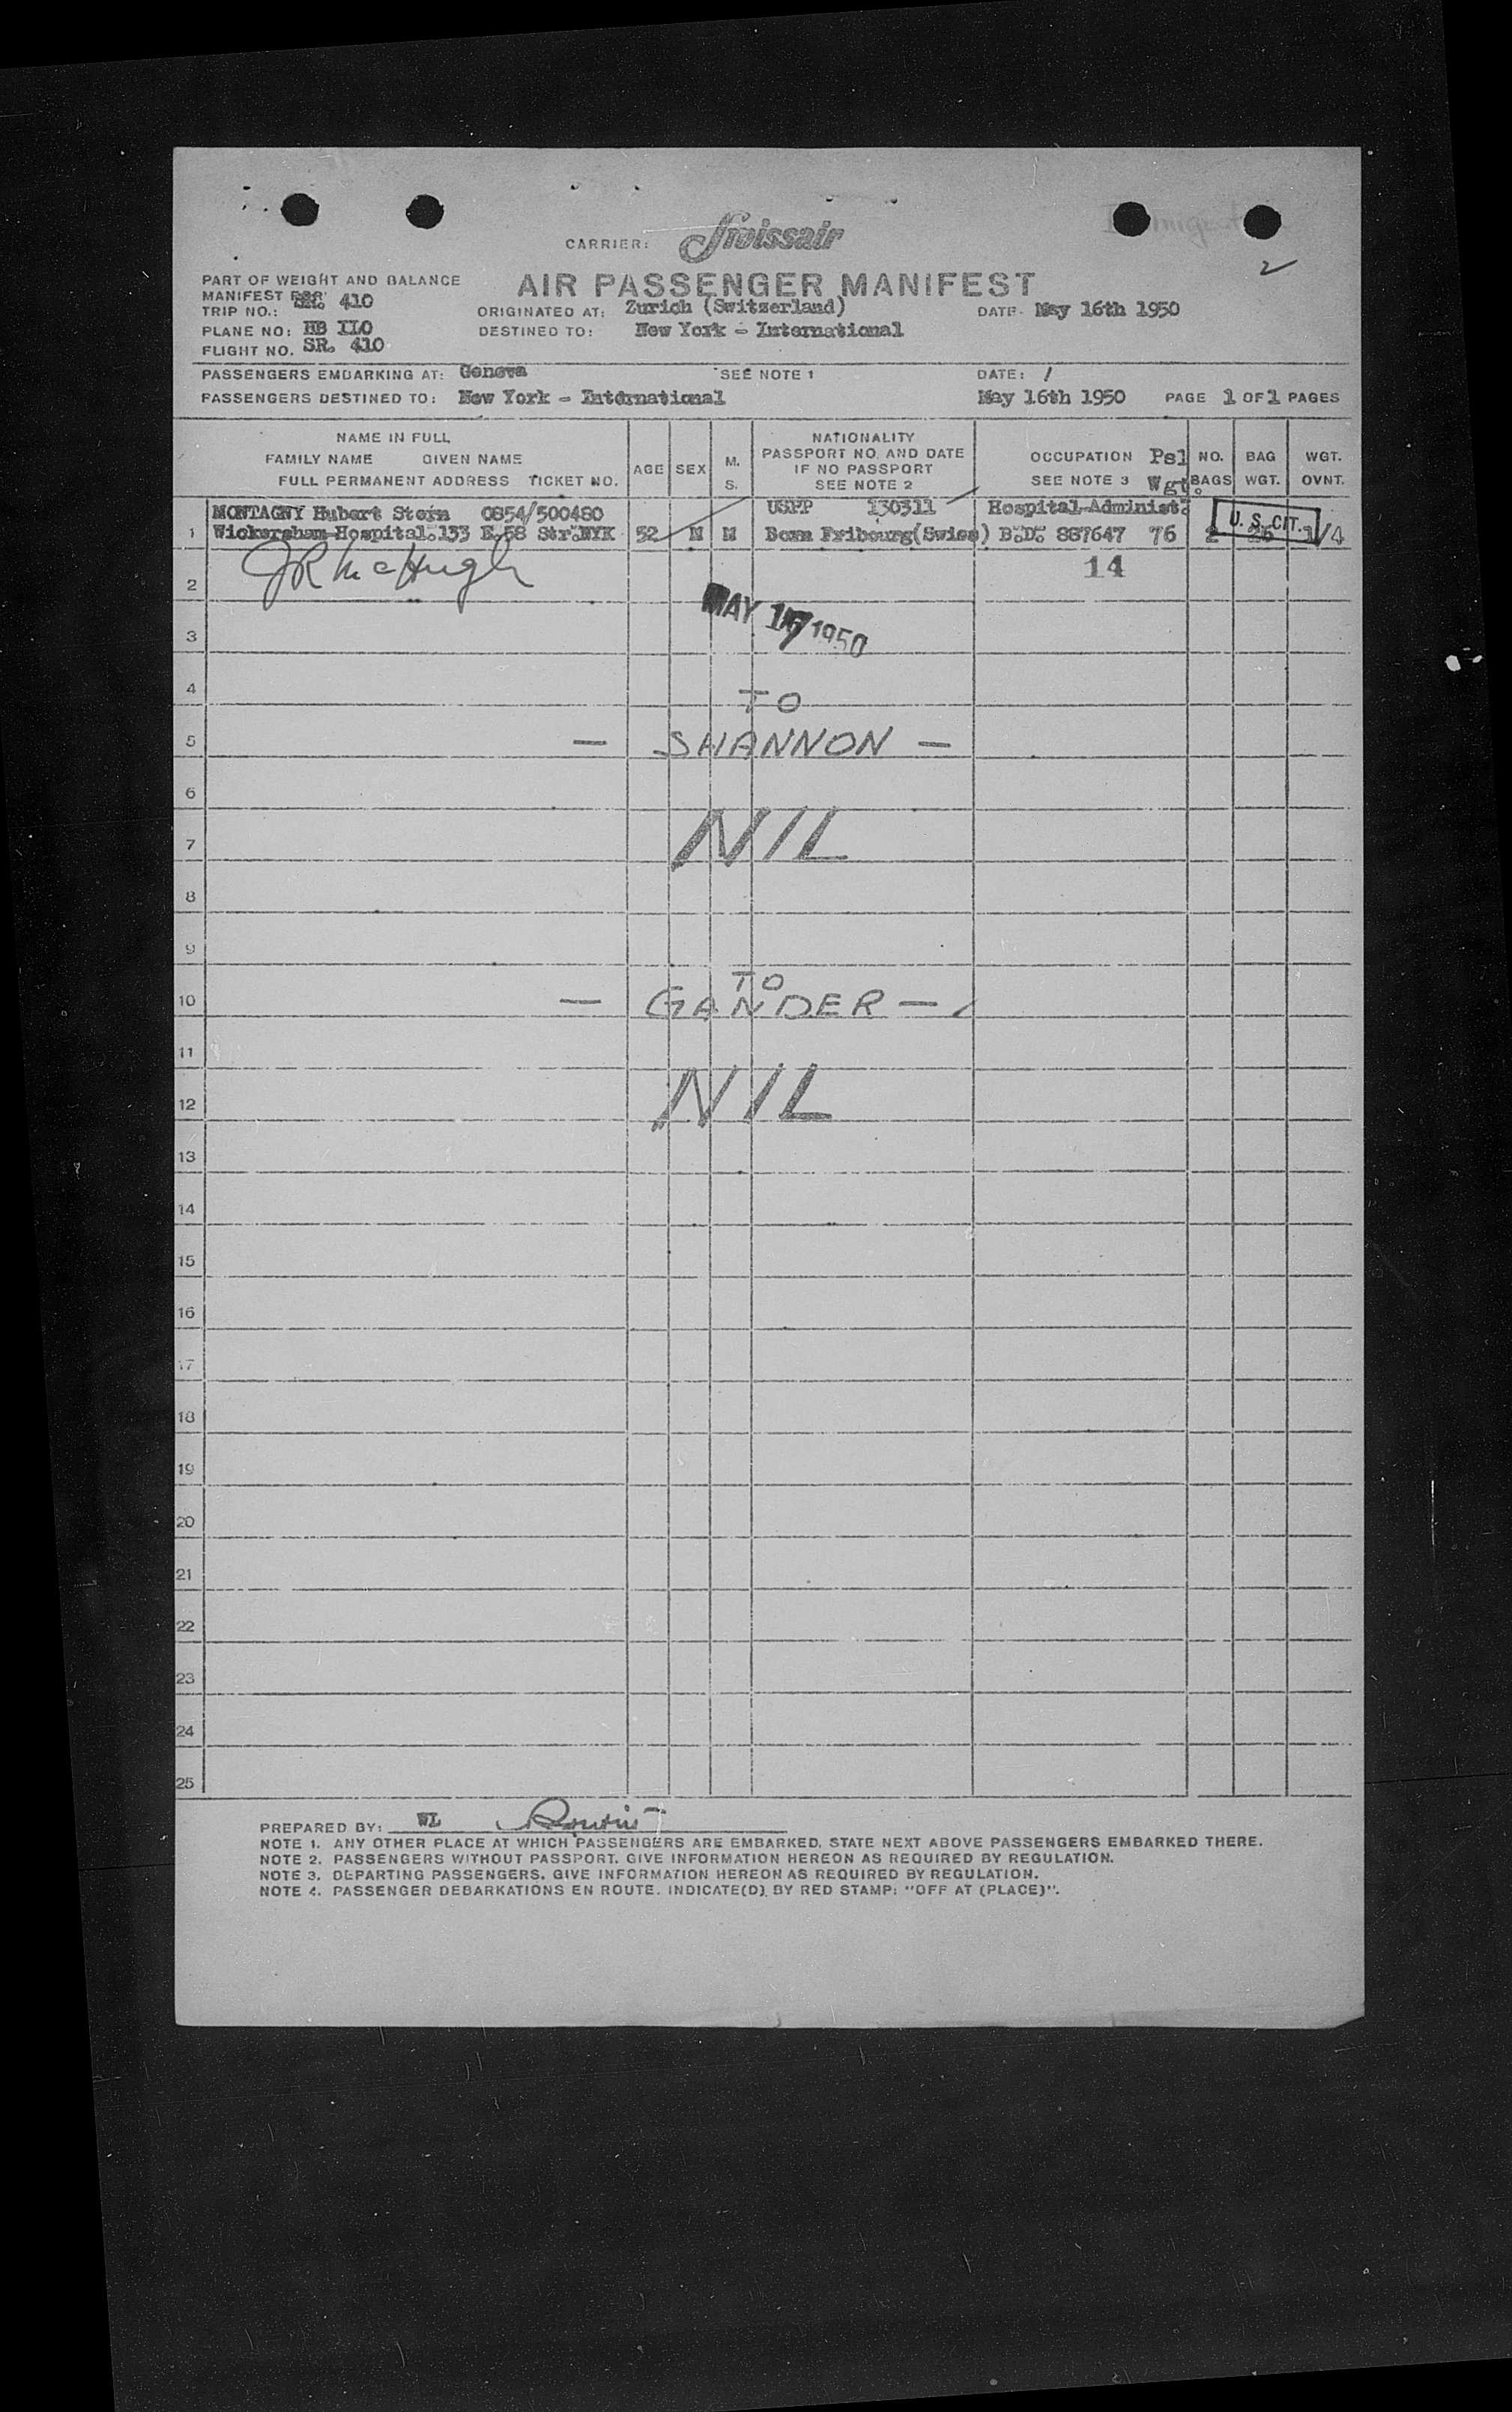 2
CARRIER: Swissair
PART OF WEIGHT AND BALANCE
MANIFEST FOR
AIR PASSENGER MANIFEST
TRIP NO.: SR. 410
ORIGINATED AT: Zurich (Switzerland)
DATE: May 16th 1950
PLANE NO: HB ILO
DESTINED TO: New York - International
FLIGHT NO. SR. 410
PASSENGERS EMBARKING AT: Geneva
SEE NOTE 1
DATE: /
PASSENGERS DESTINED TO: New York - International
May 16th 1950 PAGE 1 OF 1 PAGES
NAME IN FULL
FAMILY NAME GIVEN NAME
FULL PERMANENT ADDRESS TICKET NO.
AGE
SEX
M.
S.
NATIONALITY
PASSPORT NO. AND DATE
IF NO PASSPORT
SEE NOTE 2
OCCUPATION
SEE NOTE 3
Psl
Wgt.
NO.
BAGS
BAG
WGT.
WGT.
OVNT.
1
MONTAGNY Hubert Stern 0854/500480 USPP 130311 Hospital-Administ.
Wickersham-Hospital.133 E.58 Str.NYK 52 M M Born Fribourg(Swiss) B.D. 887647 76 2 26 1/4
U. S. CIT.
2
JR McHugh
14
MAY 17 1950
3
4
TO
5
— SHANNON —
6
7
NIL
8
9
TO
10
— GANDER —
11
12
NIL
13
14
15
16
17
18
19
20
21
22
23
24
25
PREPARED BY: WL
NOTE 1. ANY OTHER PLACE AT WHICH PASSENGERS ARE EMBARKED, STATE NEXT ABOVE PASSENGERS EMBARKED THERE.
NOTE 2. PASSENGERS WITHOUT PASSPORT, GIVE INFORMATION HEREON AS REQUIRED BY REGULATION.
NOTE 3. DEPARTING PASSENGERS, GIVE INFORMATION HEREON AS REQUIRED BY REGULATION.
NOTE 4. PASSENGER DEBARKATIONS EN ROUTE, INDICATE(D) BY RED STAMP: "OFF AT (PLACE)".